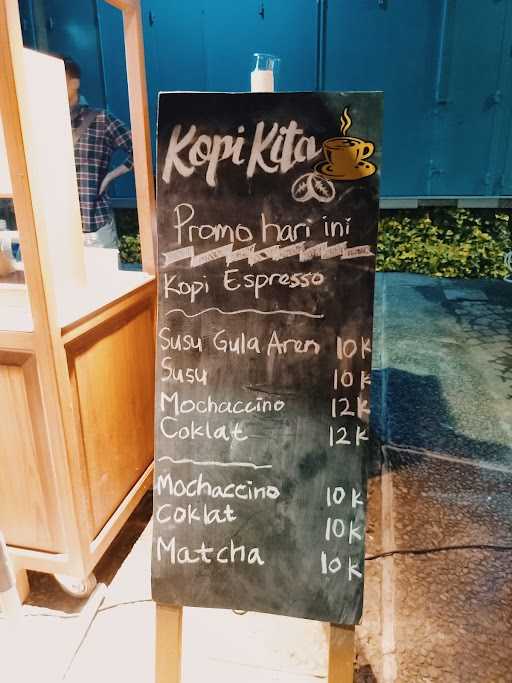 Kopi Kita
Promo hari ini
Kopi Espresso
Susu Gula Aren 10K
Susu 10K
Mochaccino 12K
Coklat 12K
Mochaccino 10K
Coklat 10K
Matcha 10K